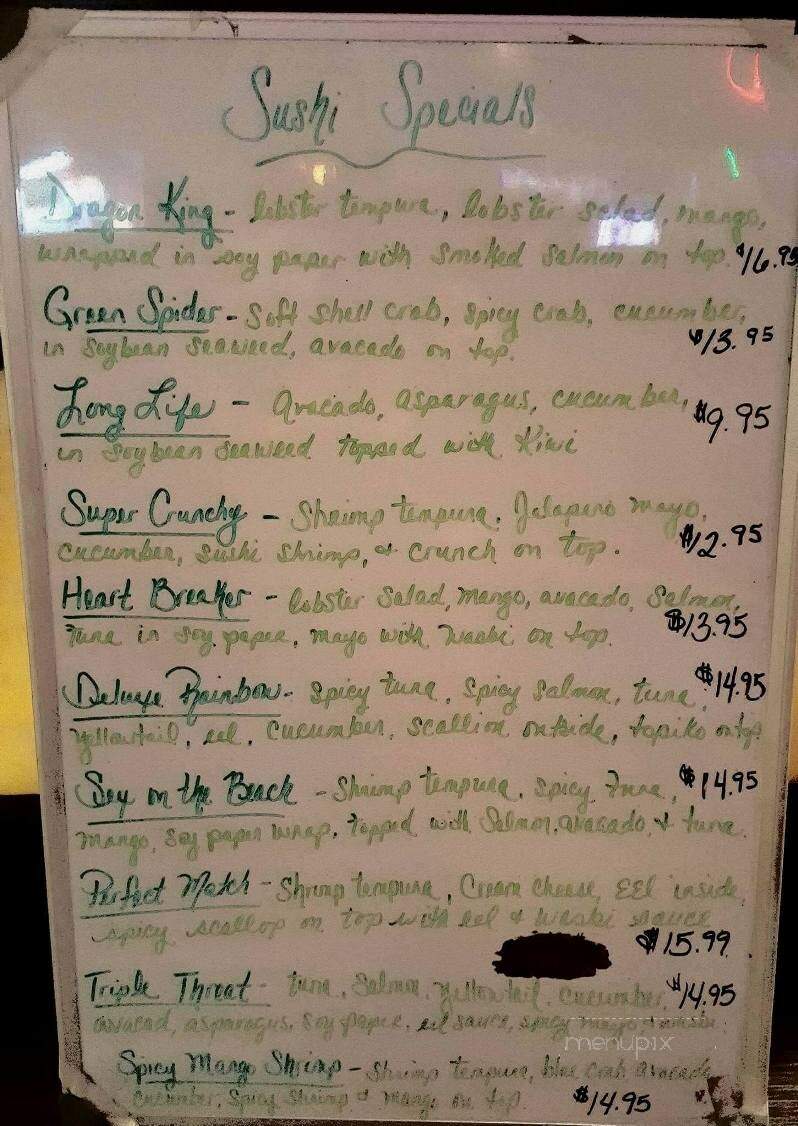 Sushi Specials
Dragon King - lobster tempura, lobster salad, mango,
wrapped in soy paper with smoked salmon on top. $16.95
Green Spider - Soft shell crab, spicy crab, cucumber,
in soybean seaweed, avacado on top. $13.95
Long Life - Avacado, asparagus, cucumber, $9.95
in soybean seaweed topped with Kiwi
Super Crunchy - Shrimp tempura, Jalapeno mayo,
cucumber, sushi shrimp, & crunch on top. $12.95
Heart Breaker - lobster salad, mango, avacado, salmon,
tuna in soy paper, mayo with wasbi on top. $13.95
Deluxe Rainbow - spicy tuna, spicy salmon, tuna, $14.95
yellowtail, eel, cucumber, scallion outside, topiko on top
Sex on the Beach - Shrimp tempura, spicy tuna, $14.95
mango, soy paper wrap, topped with salmon, avacado, & tuna.
Perfect Match - Shrimp tempura, Cream cheese, EEl inside,
spicy scallop on top with eel & wasbi sauce
$15.99
Triple Threat - tuna, salmon, yellowtail, cucumber, $14.95
avacad, asparagus, soy paper, eel sauce, spicy mayo
menupix
Spicy Mango Shrimp - Shrimp tempura, blue crab avacado
cucumber, spicy shrimp & mango on top $14.95